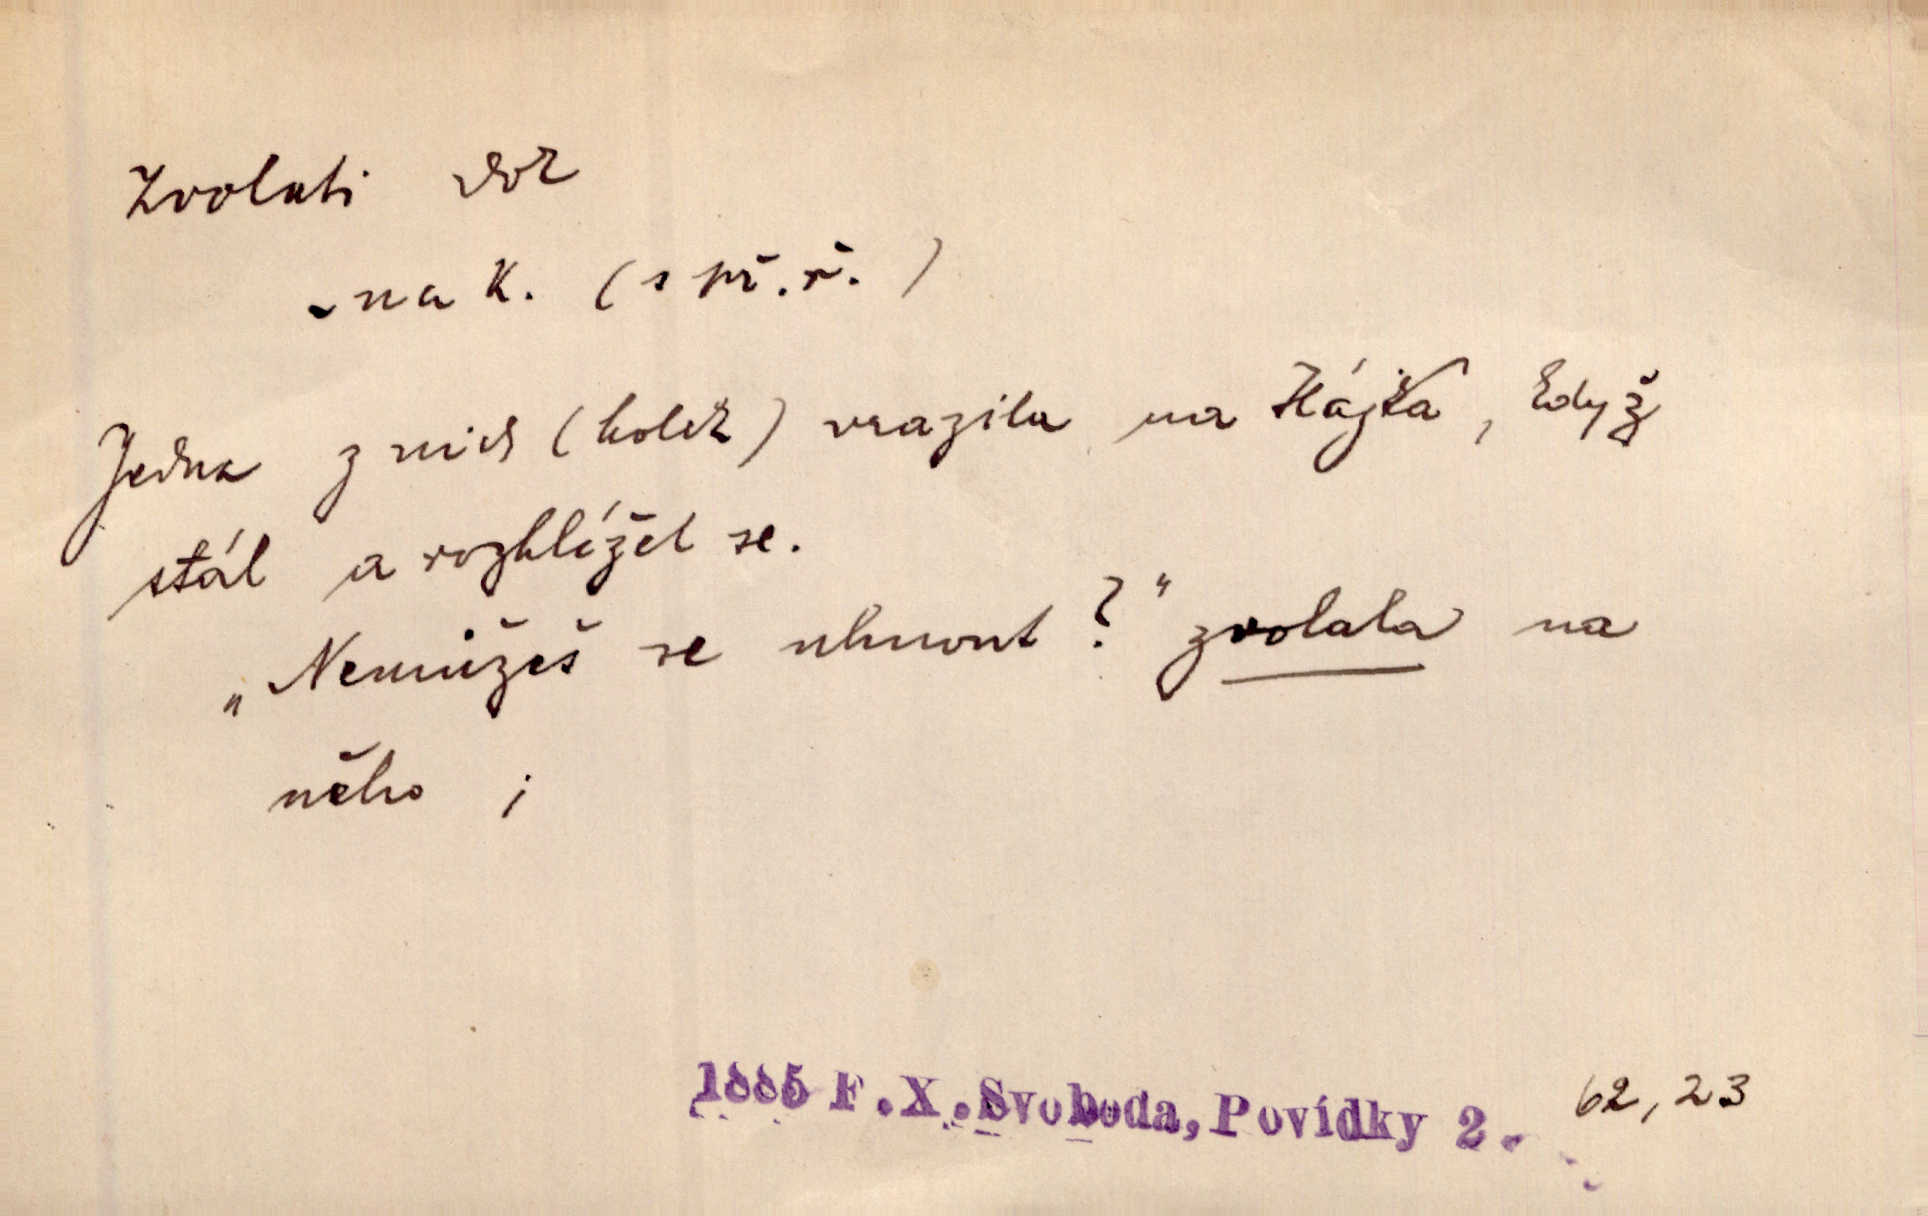 Zvolati dok
- na K. (s př. ř.)
Jedna z nich (holek) vrazila na Hájka, když
stál a rozhlížel se.
„Nemůžeš se uhnout?" zvolala na
něho ;
1885 F.X.Svoboda, Povídky 2. 62,23